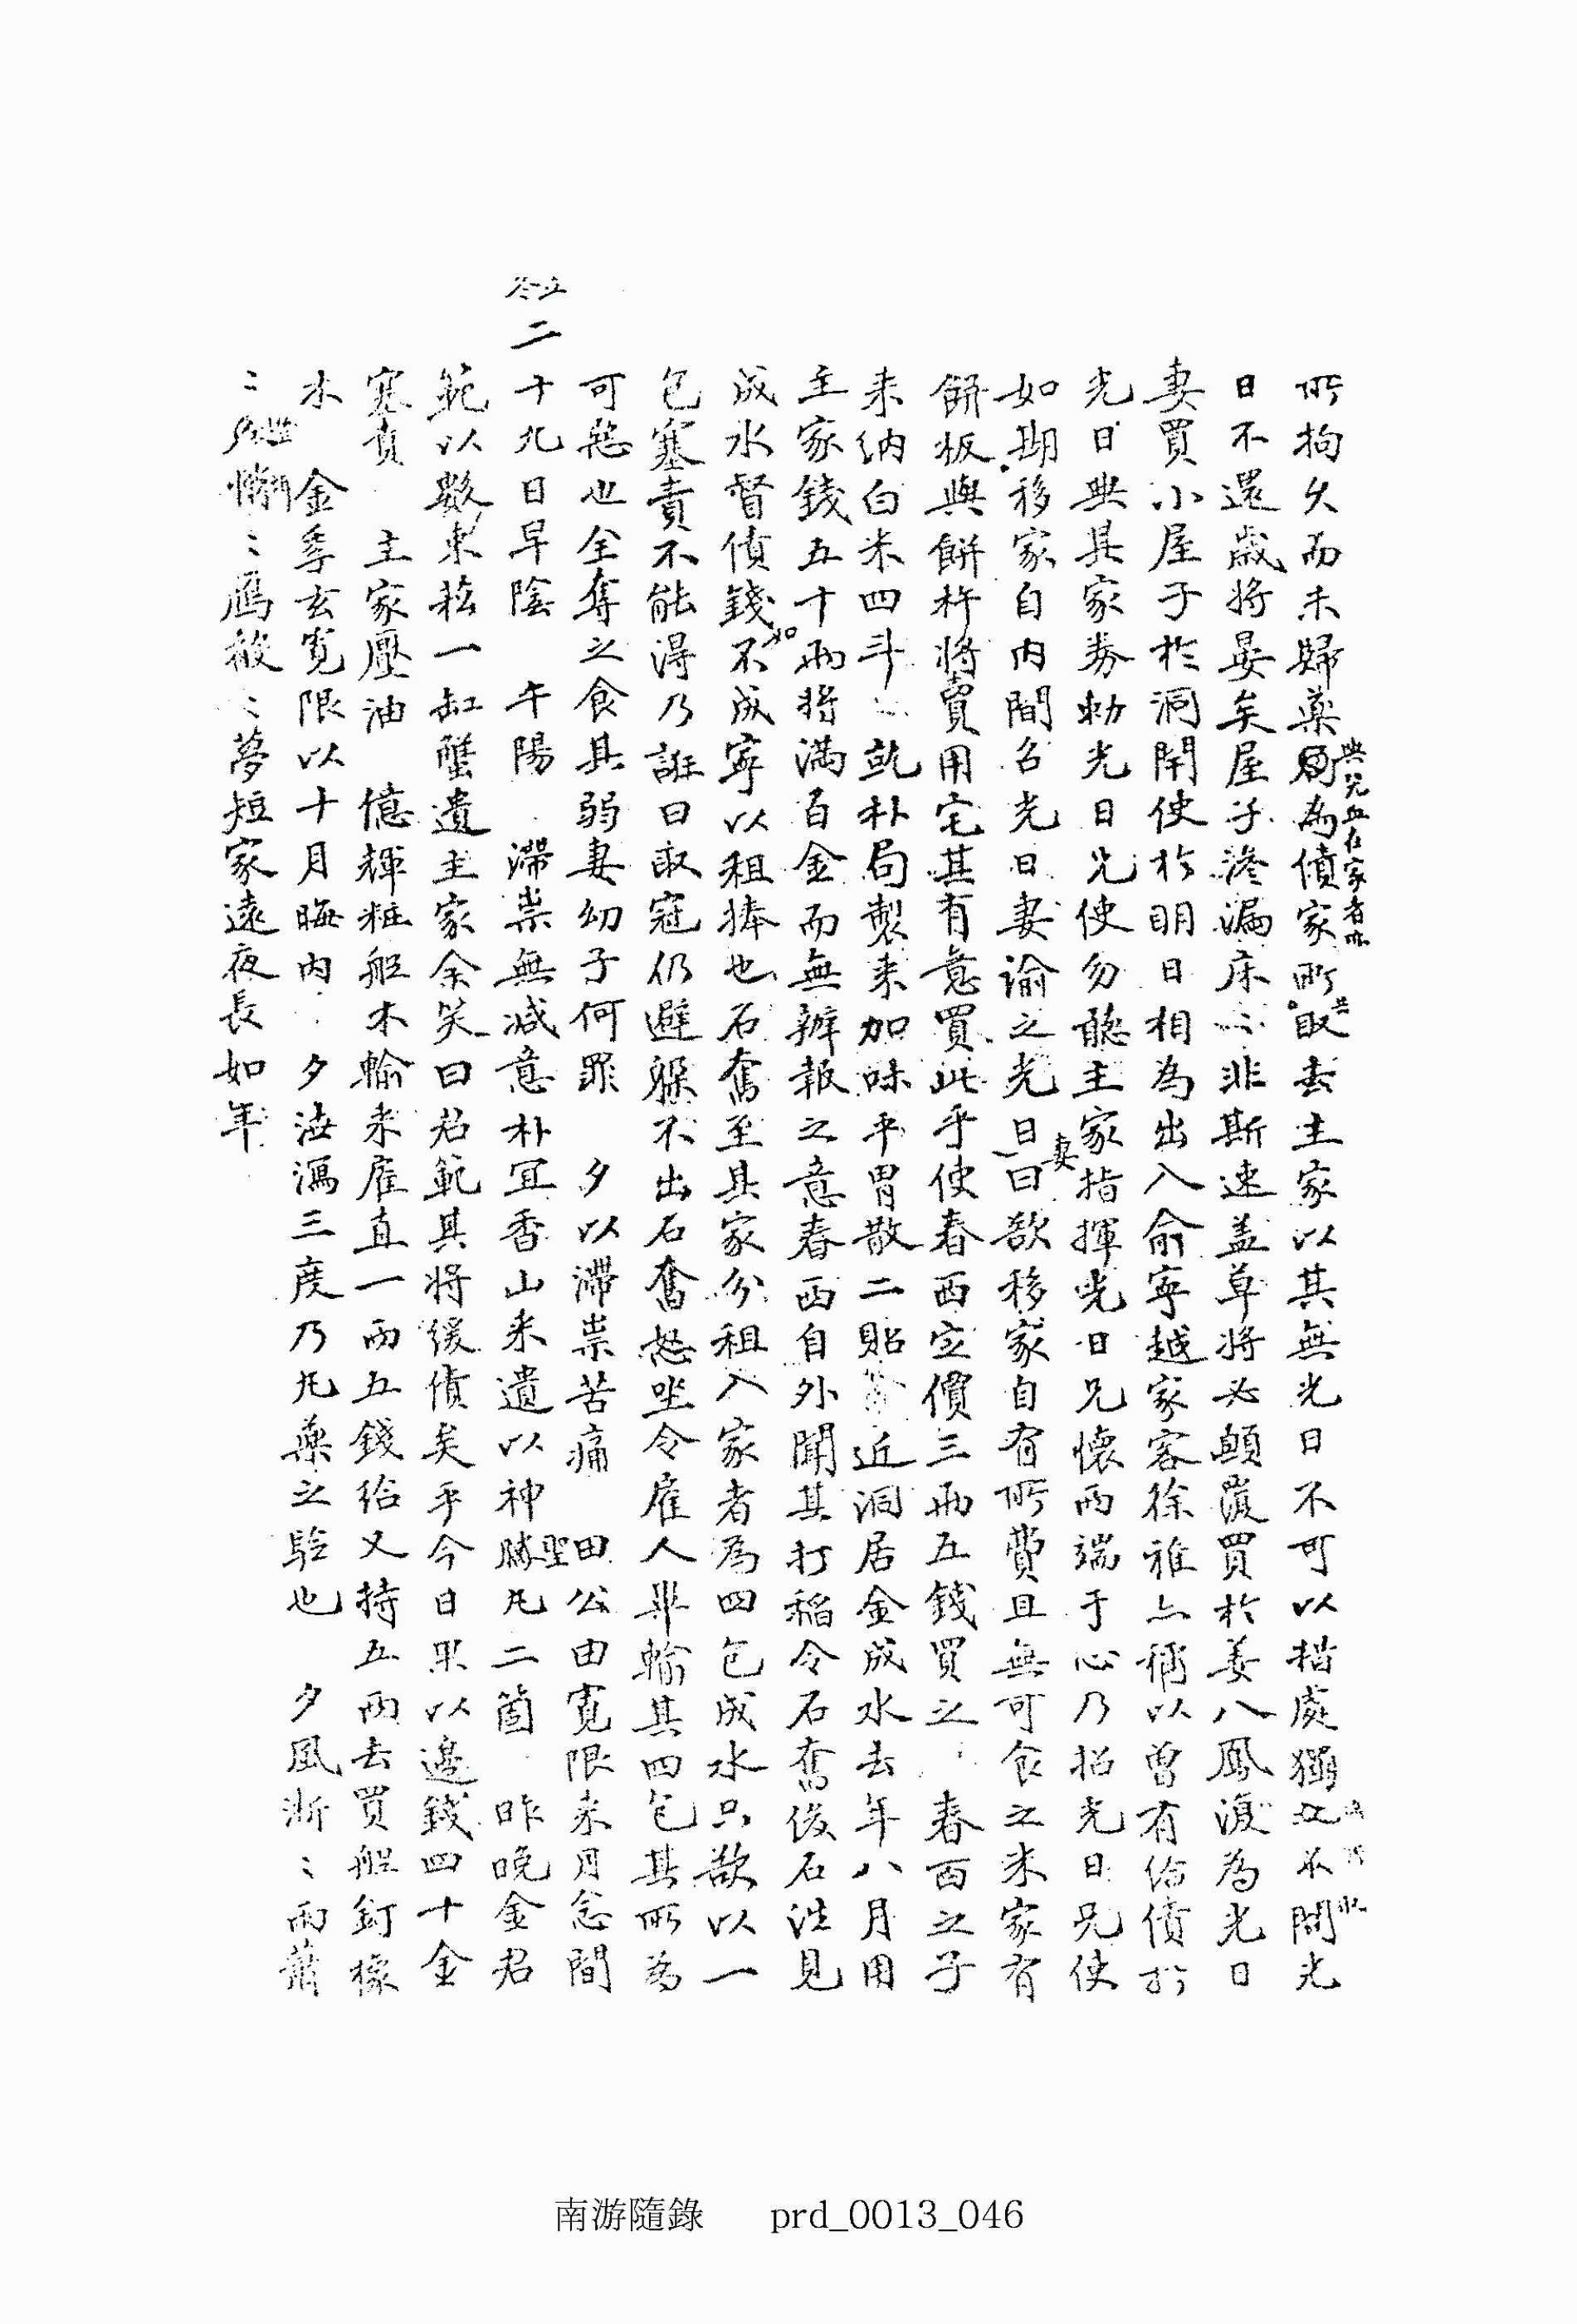 所拘久而未歸藥局為債家所取去主家以其無光日不可以措處獨立不関光
與兄并在家者亦
共
日不還歲將晏矣屋子滲漏床〻非斯速盖草將必顛覆買於姜八鳳復為光日
妻買小屋于於洞開使於明日相為出入俞寧越家客徐雅亦稱以曾有給債於
光日與其家券勅光日兄使勿聽主家指揮光日兄懷兩端于心乃招光日兄使
如期移家自內間召光日妻諭之光日曰欲移家自有所費且無可食之米家有
妻
餠板與餠杵將賣用宅其有意買此乎使春西定價三兩五錢買之 春西之子
来納白米四斗〻 就朴局製来加味平胃散二貼 近洞居金成水去年八月用
主家錢五十兩將滿百金而無辦報之意春西自外聞其打稻令石奮後石往見
成水督債錢不成寧以租捧也石奮至其家分租入家者為四包成水只欲以一
如
包塞責不能得乃誑曰取冠仍避躱不出石奮怒坐令雇人畢輸其四包其所為
可惡也全奪之食其弱妻幼子何罪 夕以滯祟苦痛 田公由寬限来月念間
立冬
二十九日早陰 午陽 滯祟無减意朴冝香山来遺以神聖勝凡二箇 昨晩金君
範以數束菘一缸蟹遺主家余笑曰君範其將緩債矣乎今日果以邊錢四十金
塞責 主家壓油 億輝粧船木輸来雇直一兩五錢給又持五兩去買船釘椽
木 金季玄寬限以十月晦內 夕注瀉三度乃凡藥之驗也 夕風淅〻雨蕭
〻 雁徹〻夢短家遠夜長如年
南游隨錄 prd_0013_046